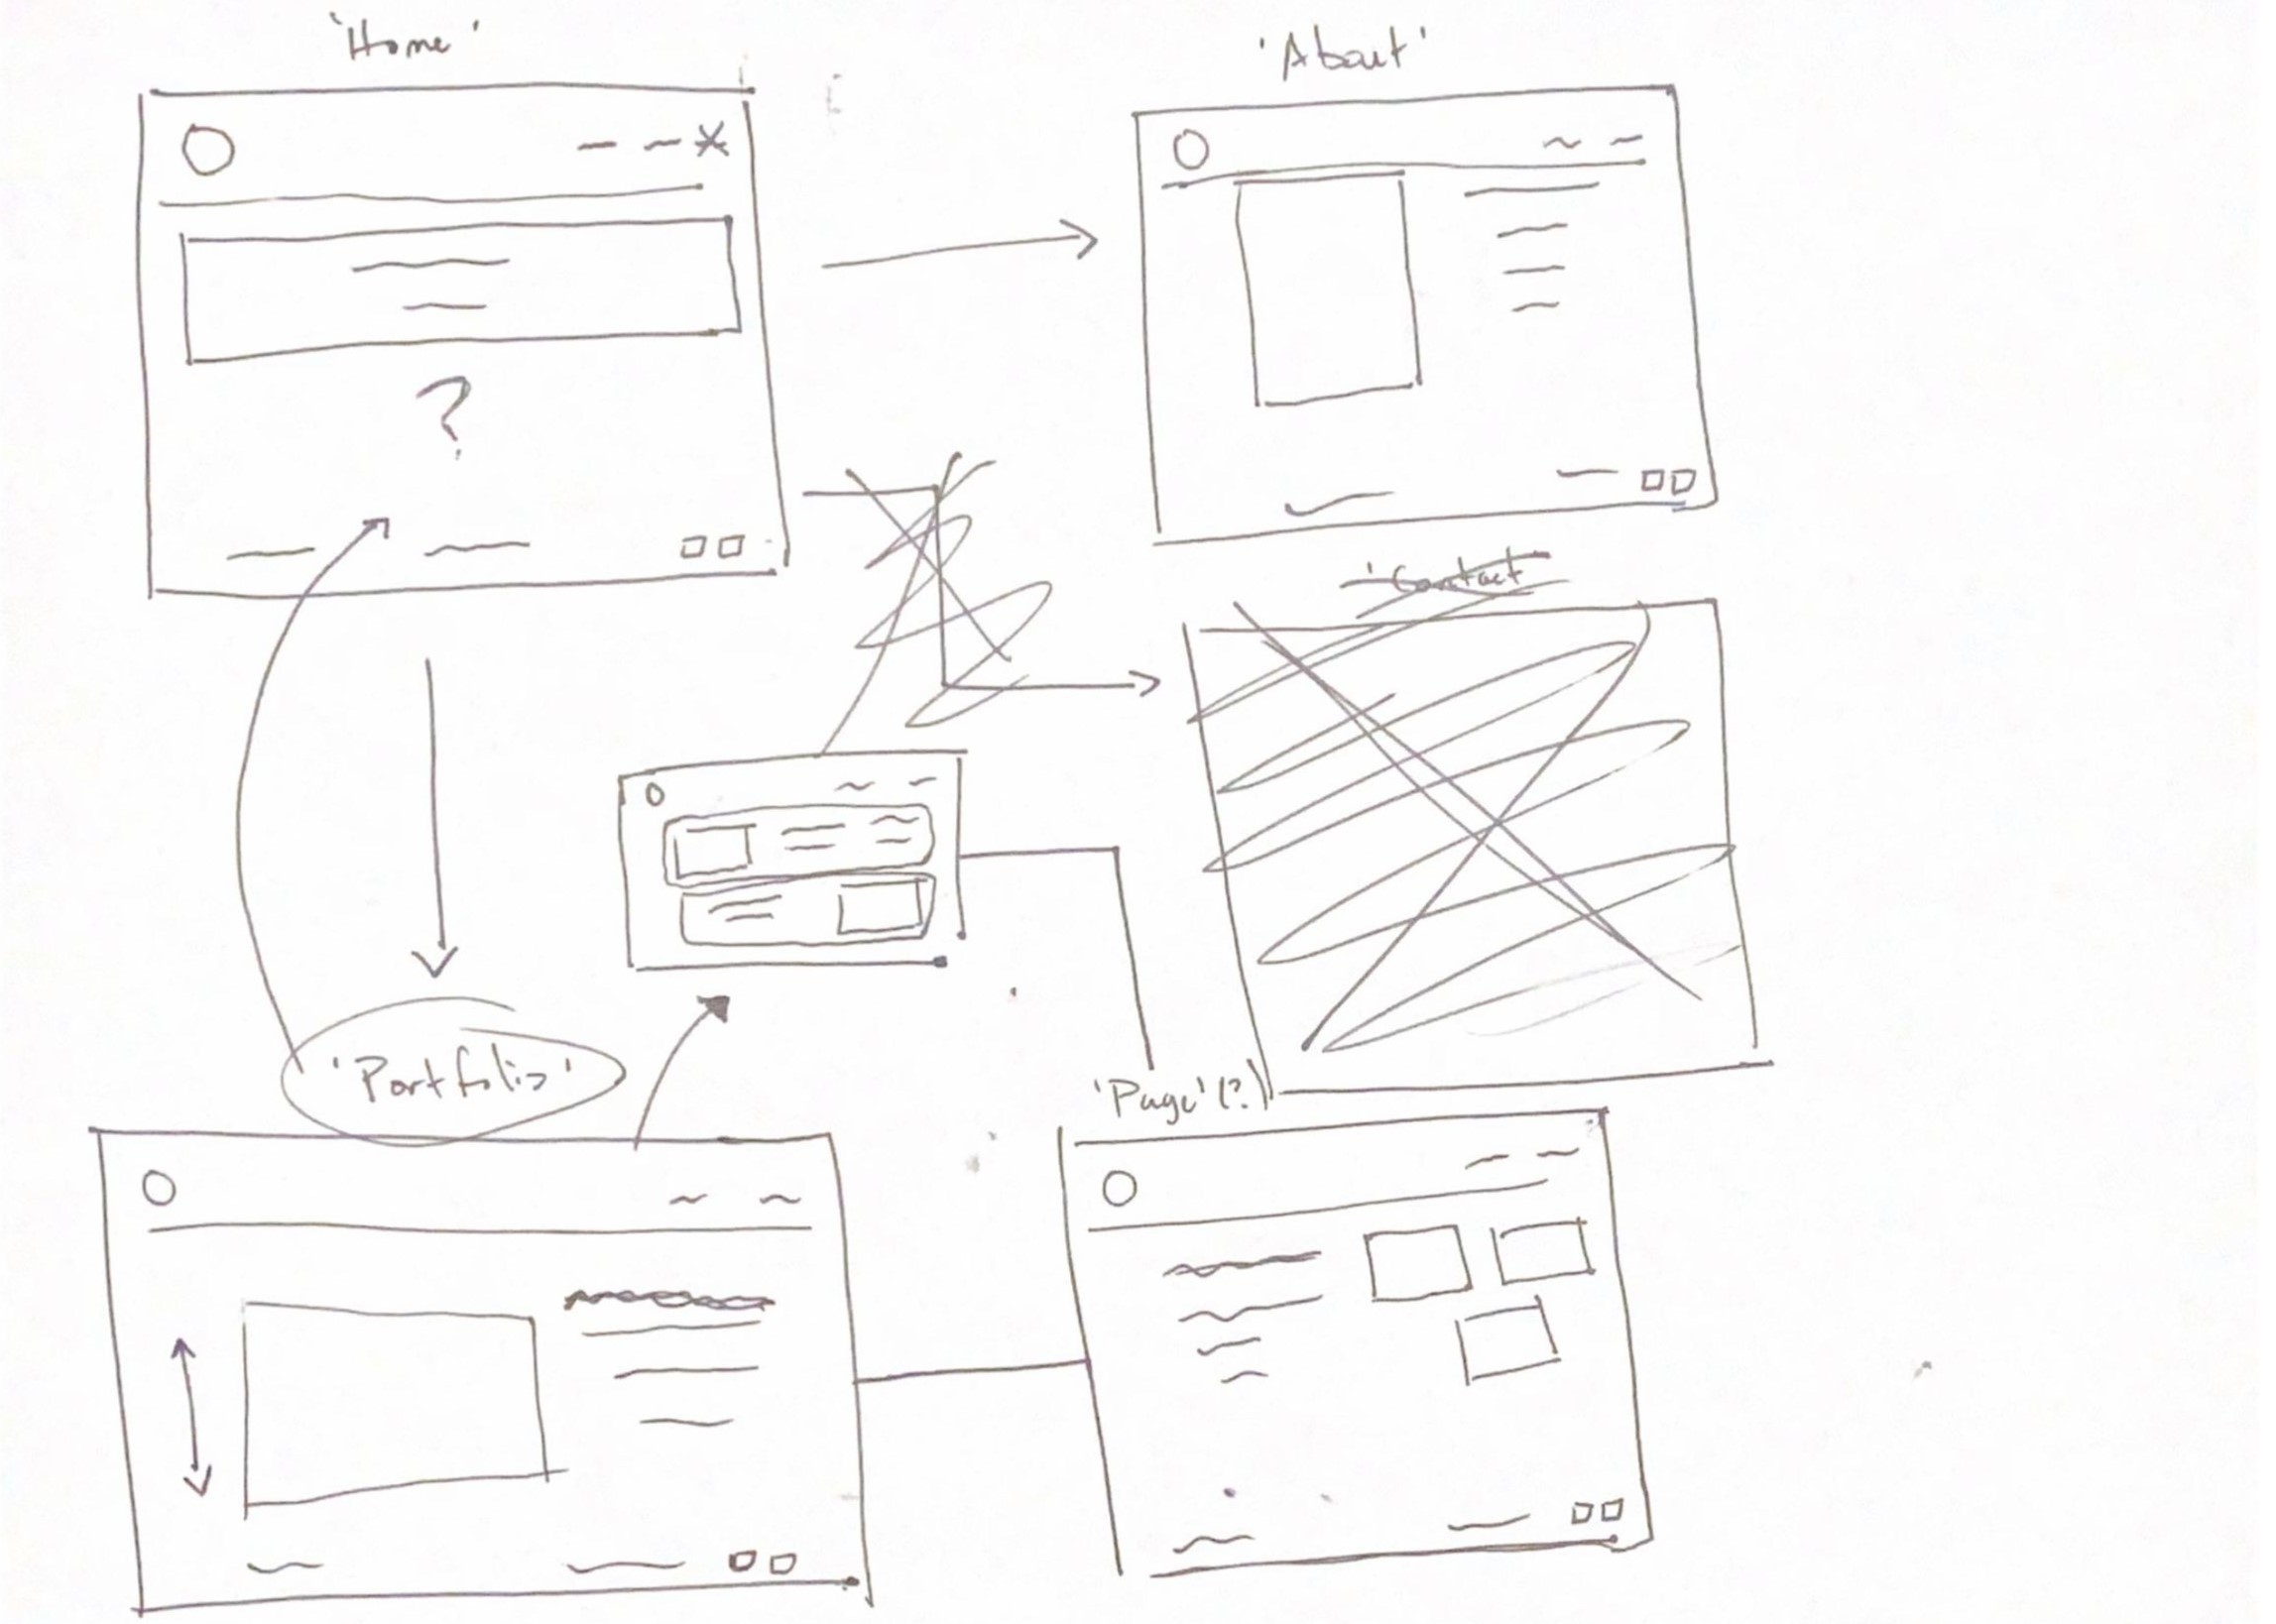 'Home'
'About'
?
'Contact
'Portfolio'
'Page' (?)